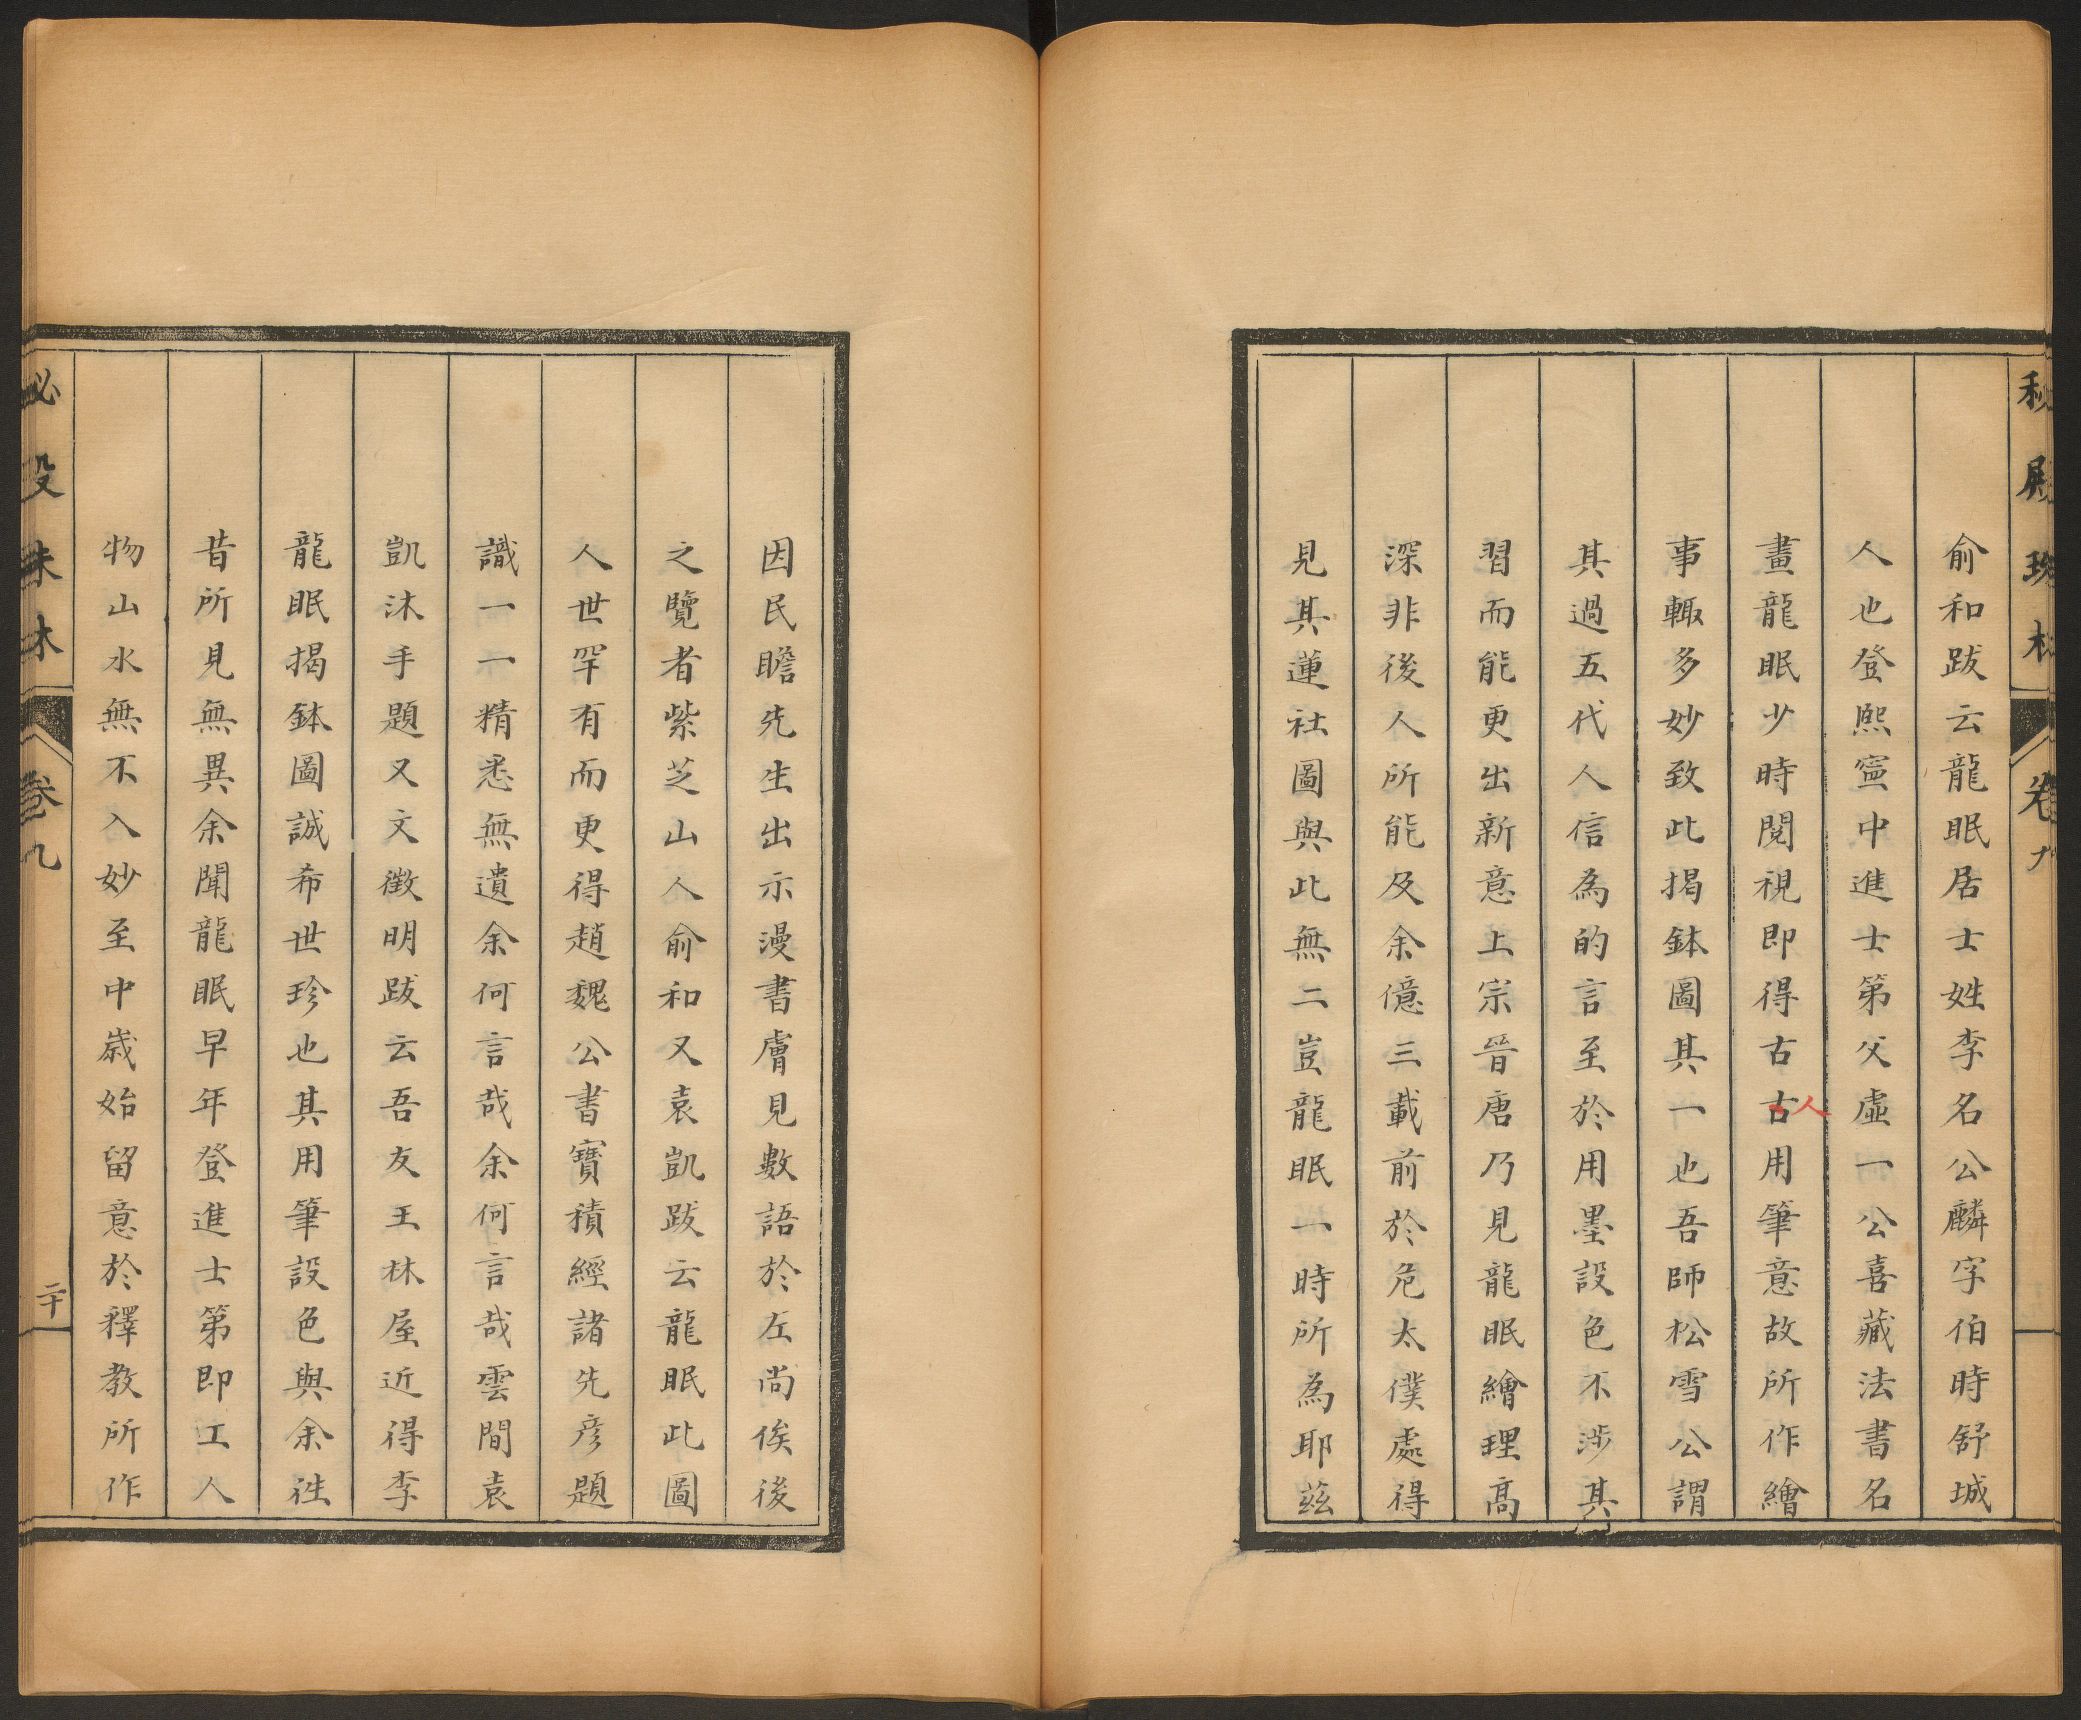 秘殿珠林
卷九
俞和跋云龍眠居士姓李名公麟字伯時舒城
人也登熙寧中進士第父虛一公喜藏法書名
畫龍眠少時閱視即得古古用筆意故所作繪
人
事輒多妙致此揭鉢圖其一也吾師松雪公謂
其過五代人信為的言至於用墨設色不涉其
習而能更出新意上宗晉唐乃見龍眠繪理高
深非後人所能及余億三載前於危太僕處得
見其蓮社圖與此無二豈龍眠一時所為耶茲
因民瞻先生出示漫書膚見數語於左尚俟後
之覽者紫芝山人俞和又袁凱跋云龍眠此圖
人世罕有而更得趙魏公書寶積經諸先彥題
識一一精悉無遺余何言哉余何言哉雲間袁
凱沐手題又文徵明跋云吾友王林屋近得李
龍眠揭鉢圖誠希世珍也其用筆設色與余徃
昔所見無異余聞龍眠早年登進士第即工人
物山水無不入妙至中歲始留意於釋教所作
秘殿珠林
卷九
二十